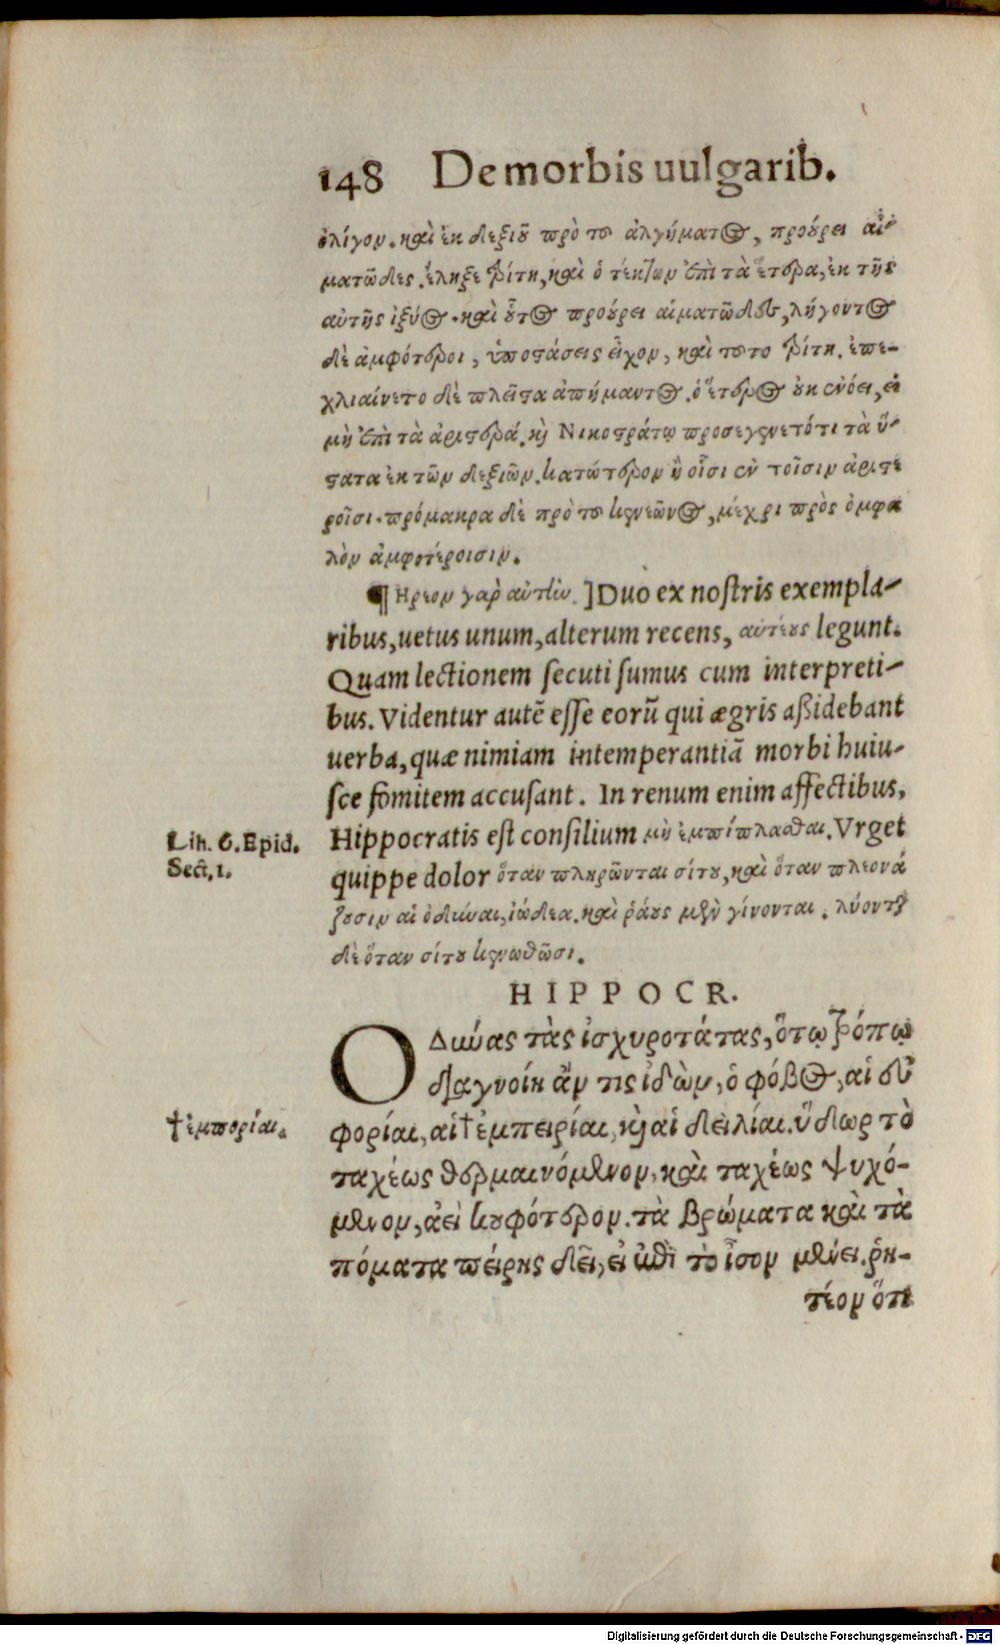 148 De morbis uulgarib.
ὀλίγον. καὶ ἐκ δεξιοῦ πρὸ τοῦ ἀλγήματος, προούρει αἱ-
ματῶδες. ἔληξε τρίτη, καὶ ὁ τέκτων ἐπὶ τὰ ἕτερα, ἐκ τῆς
αὐτῆς ἰξύος. καὶ οὗτος προούρει αἱματῶδες, λήγοντος
δὲ ἀμφότεροι, ὑποστάσεις εἶχον, καὶ τοῦτο τρίτη. ἐπε-
χλιαίνετο δὲ πλεῖστα ἀπήμαντος. ὁ ἕτερος οὐκ ἐνόει, εἰ
μὴ ἐπὶ τὰ ἀριστερά. καὶ Νικοστράτῳ προσεγενετότι τὰ ὕ-
στατα ἐκ τῶν δεξιῶν. κατώτερον ἢ οἷσι ἐν τοῖσιν ἀριστε
ροῖσι. πρόμακρα δὲ πρὸ τοῦ κενεῶνος, μέχρι πρὸς ὀμφα
λὸν ἀμφοτέροισιν.
¶ Ηρεον γαρ̀ αὐτὴν.] Duo ex nostris exempla-
ribus, uetus unum, alterum recens, αὐτέους legunt.
Quam lectionem secuti sumus cum interpreti-
bus. Videntur autē esse eorū qui ægris aßidebant
uerba, quæ nimiam intemperantiā morbi huiu-
sce fomitem accusant. In renum enim affectibus,
Lib. 6. Epid.
Sect. 1.
Hippocratis est consilium μὴ ἐμπίπλασθαι. Vrget
quippe dolor ὅταν πληρῶνται σίτου, καὶ ὅταν πλεονά
ζουσιν αἱ ὀδύναι, ἰώδεα. καὶ ῥάους μὲν γίνονται. λύονται
δὲ ὅταν σίτου κενωθῶσι.
HIPPOCR.
ΟΔύνας τὰς ἰσχυροτάτας, ὅτῳ τρόπῳ
διαγνοίη ἄν τις ἰδὼν, ὁ φόβος, αἱ εὐ
†ἐμπορίαι.
φορίαι, αἱ †ἐμπειρίαι, καὶ αἱ δειλίαι. ὕδωρ τὸ
ταχέως θερμαινόμενον, καὶ ταχέως ψυχό-
μενον, ἀεὶ κουφότερον. τὰ βρώματα καὶ τὰ
πόματα πείρης δεῖ, εἰ ἐπὶ τὸ ἶσον μένει. ῥη-
τέον ὅτι
Digitalisierung gefördert durch die Deutsche Forschungsgemeinschaft - DFG